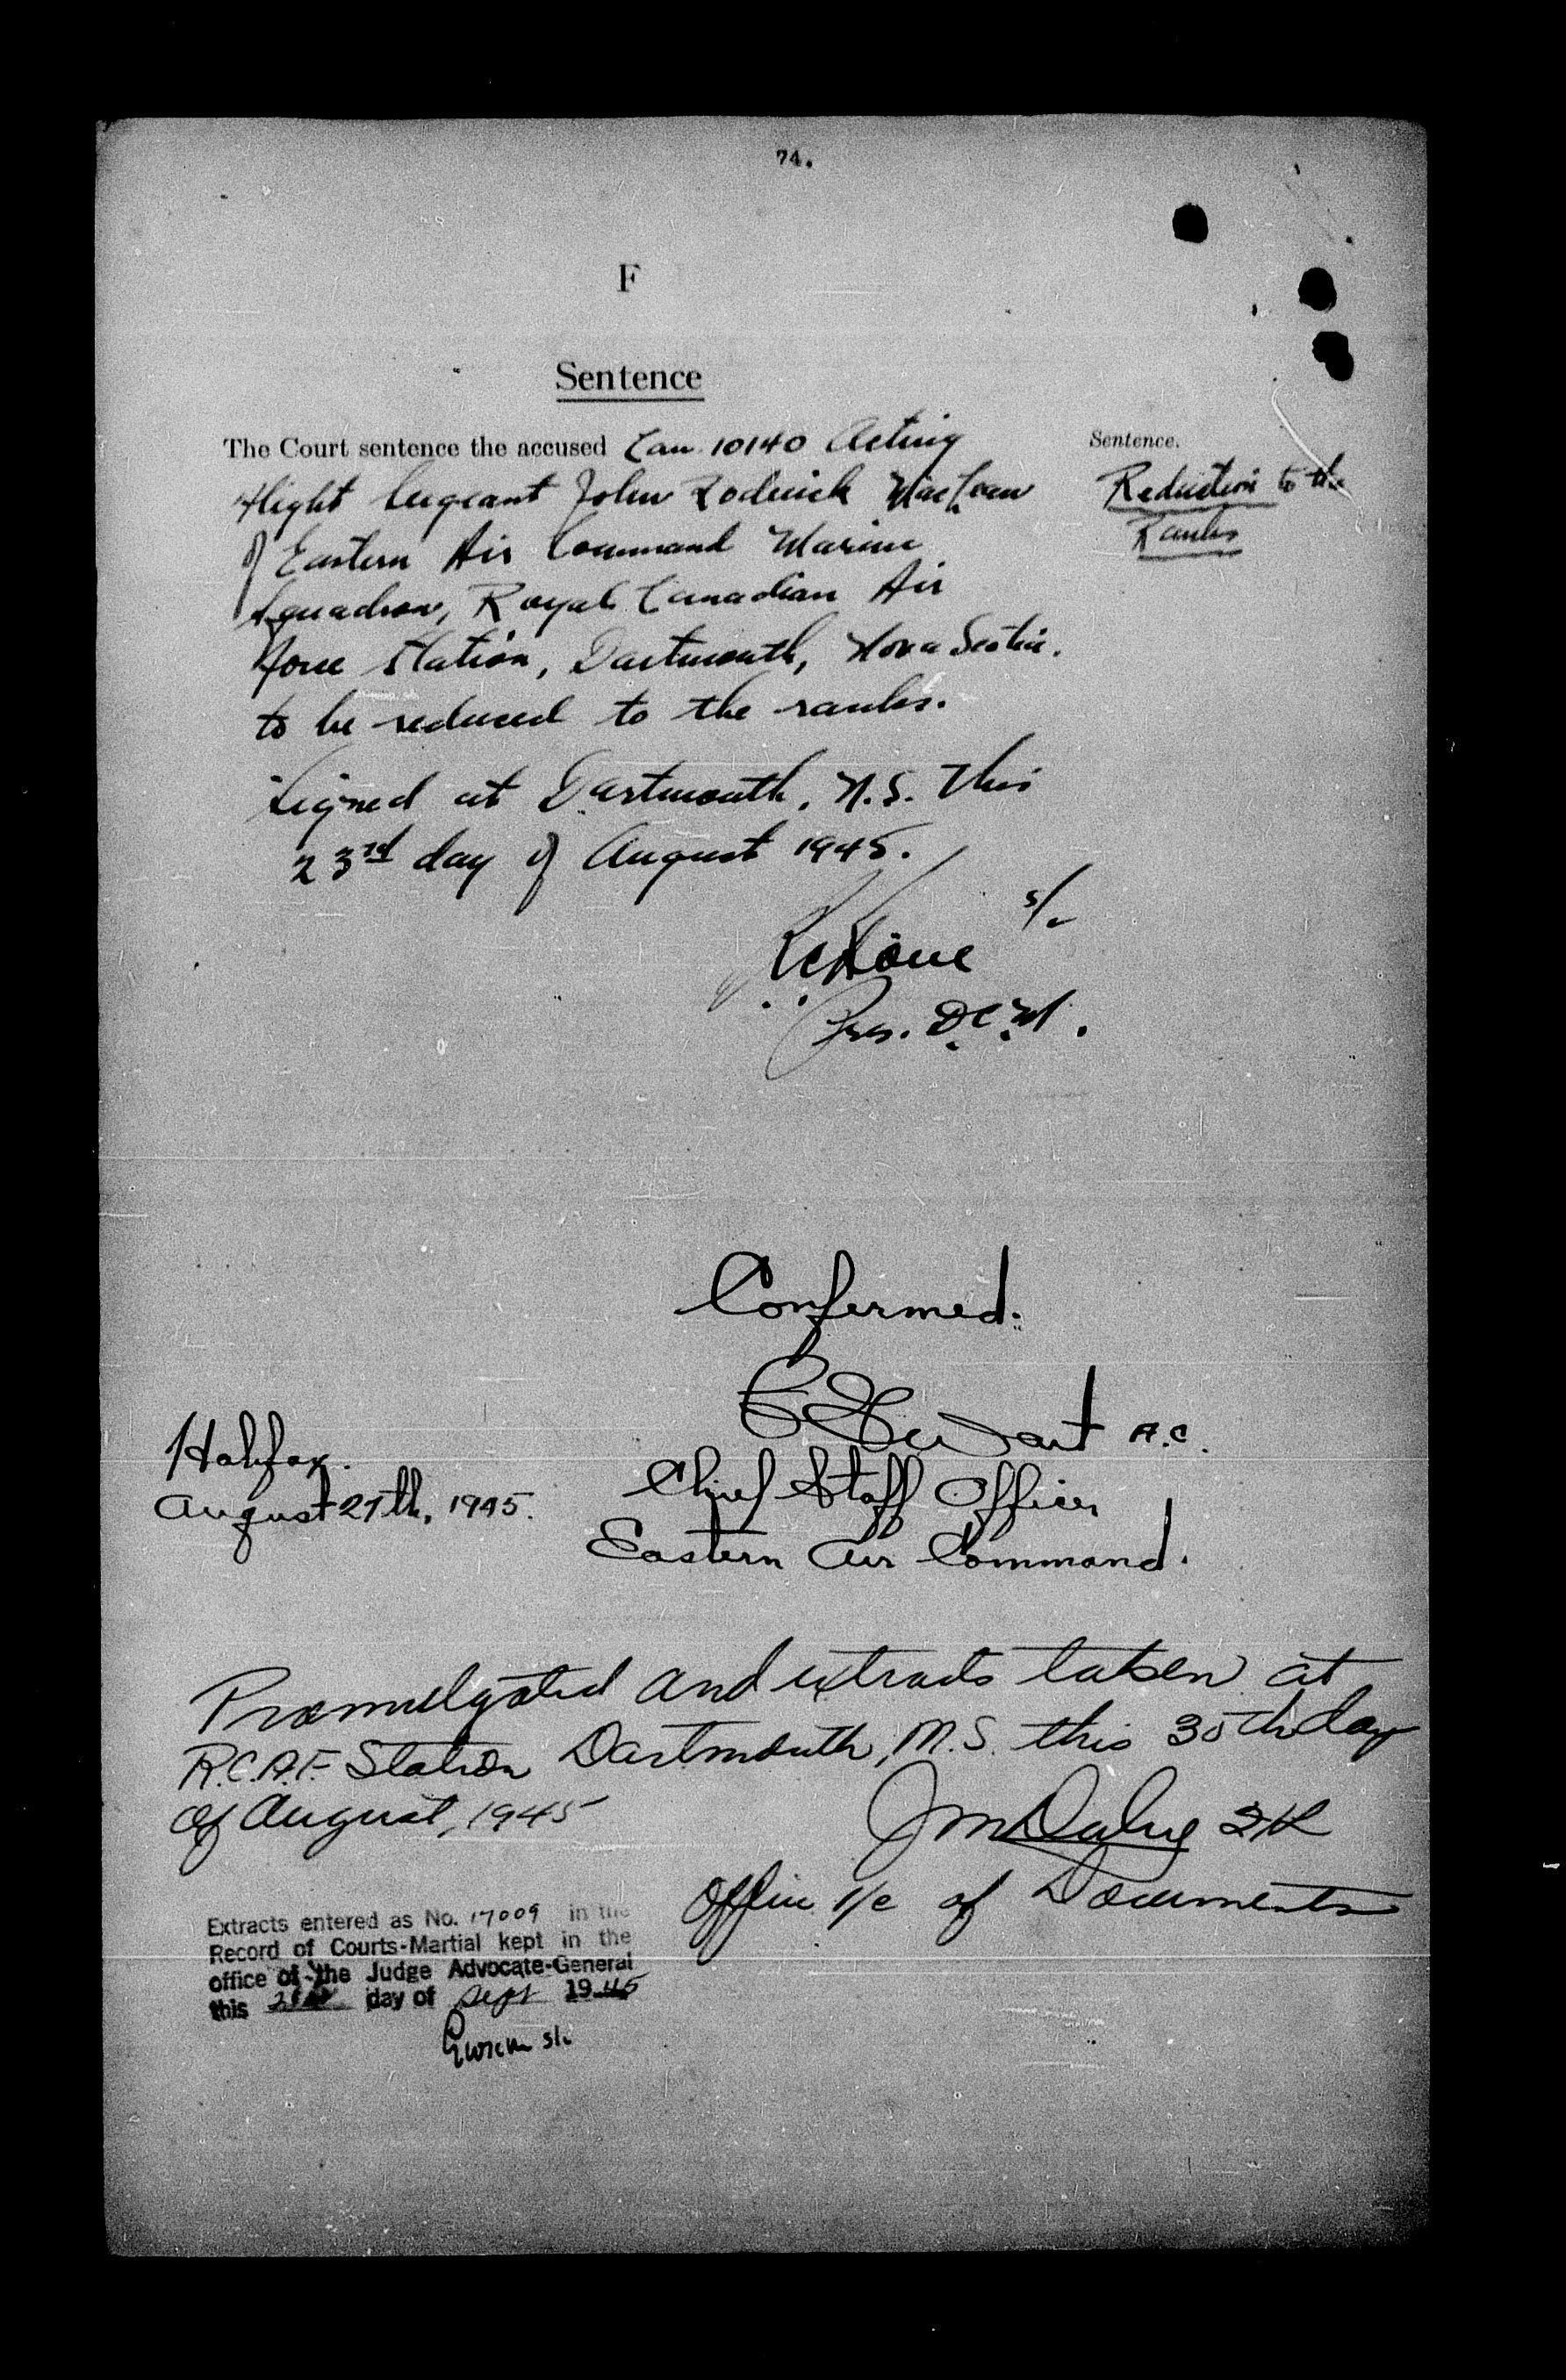 74.
F
Sentence
The Court sentence the accused Can. 10140 Acting
Flight Sergeant John Roderick MacLean
of Eastern Air Command Marine
Squadron, Royal Canadian Air
Force Station, Dartmouth, Nova Scotia.
to be reduced to the ranks.
Signed at Dartmouth, N.S. this
23rd day of August 1945.
S/L
Pres. D.C.M.
Sentence.
Reduction to the
Ranks
Confirmed.
A.C.
Chief Staff Officer
Eastern Air Command.
Halifax.
August 27th, 1945.
Promulgated and extracts taken at
R.C.A.F. Station Dartmouth, N.S. this 30th day
of August, 1945
Office i/c of Documents
Extracts entered as No. 17009 in the
Record of Courts-Martial kept in the
office of the Judge Advocate-General
this day of Sept 1945